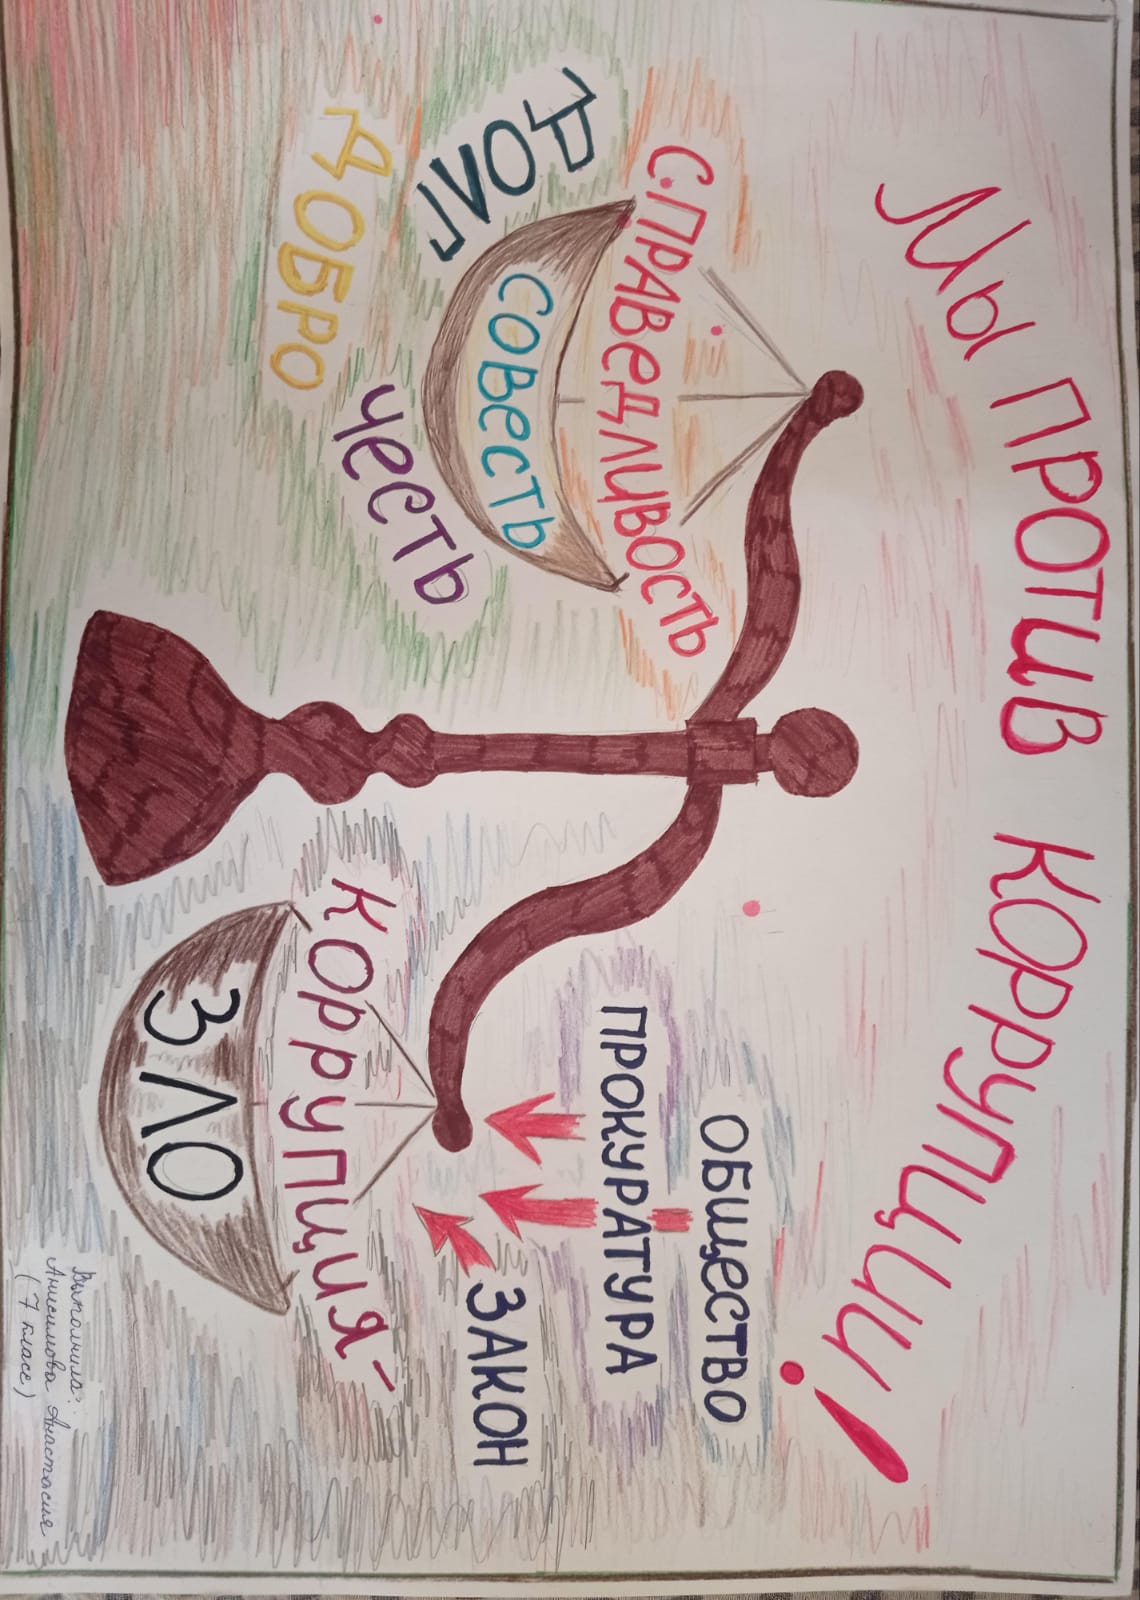 Мы против коррупции!
СПРАВЕДЛИВОСТЬ
СОВЕСТЬ
ДОЛГ
ЧЕСТЬ
ДОБРО
ОБЩЕСТВО
ПРОКУРАТУРА
ЗАКОН
Коррупция-
ЗЛО
Выполнила:
Анисимова Анастасия
(7 класс)